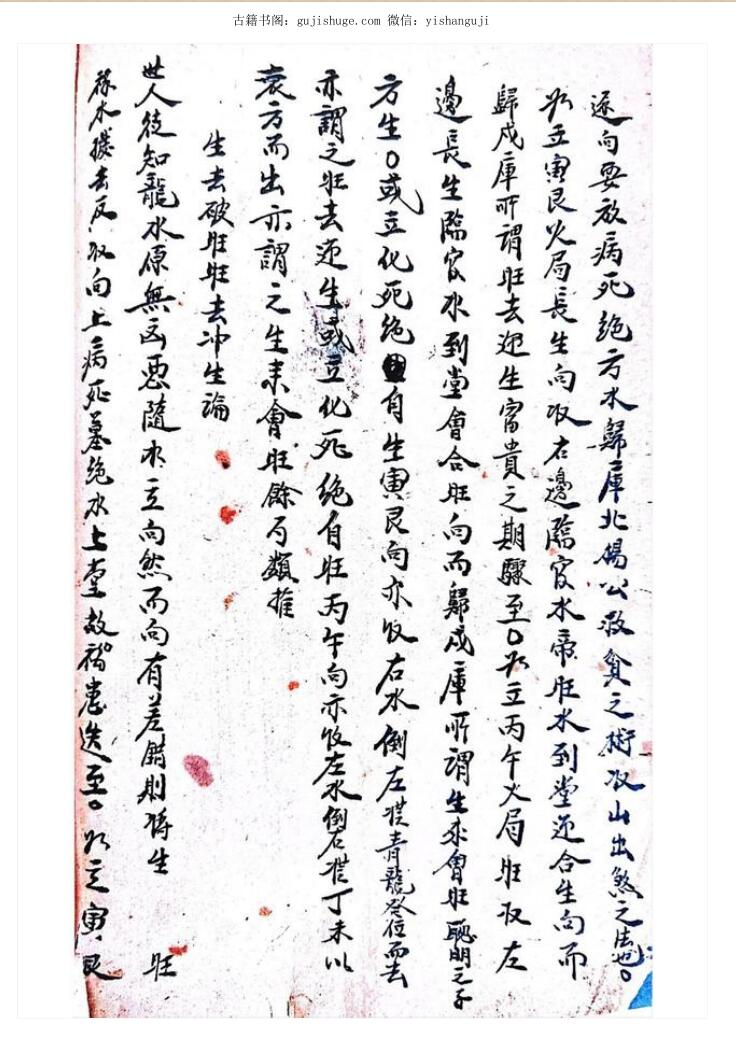 古籍书阁：gujishuge.com 微信：yishanguji
逐向要放病死绝方水歸庫北楊公救貧之術收山出煞之法也○
如立寅艮火局長生向收右邊臨官水帝旺水到堂迎合生向而
歸戍庫所謂旺去迎生富貴之期驟至○如立丙午火局旺收左
邊長生臨官水到堂會合旺向而歸戍庫所謂生來會旺聰明之子
方生○或立化死绝自生寅艮向亦收右水倒左從青龍位而去
亦謂之旺去迎生或立化死绝自旺丙午向亦收左水倒右從丁未以
衰方而出亦謂之生來會旺餘可類推
生去破旺旺去冲生論
世人徒知龍水原無凶惡隨水立向然而向有差錯則將生 旺
祿水撥去反收向上病死墓绝水上堂故禍患迭至○如立寅艮